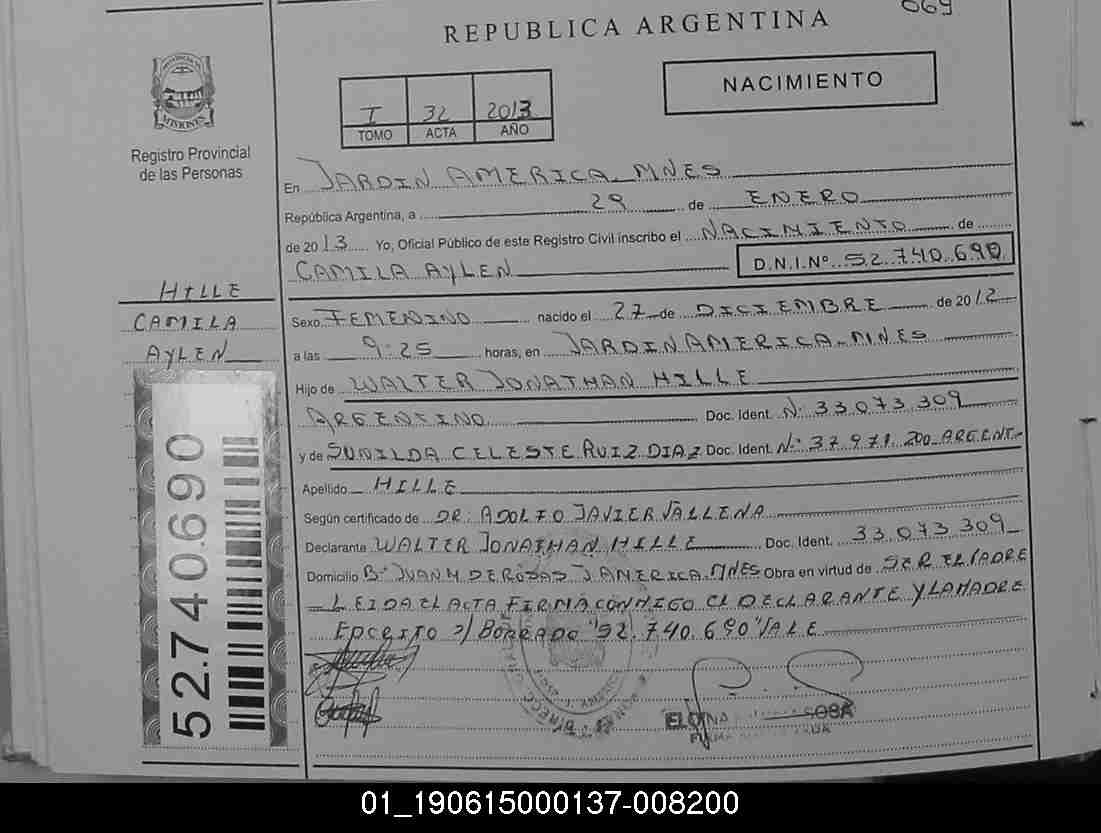 069
REPUBLICA ARGENTINA
NACIMIENTO
I 32 2013
TOMO ACTA AÑO
MISIONES
Registro Provincial
de las Personas
En JARDIN AMERICA, MNES
República Argentina, a 29 de ENERO
de 2013 Yo, Oficial Público de este Registro Civil inscribo el NACIMIENTO de
CAMILA AYLEN D.N.I.Nº 52.740.690
HILLE
CAMILA
AYLEN
Sexo FEMENINO nacido el 27 de DICIEMBRE de 2012
a las 9:25 horas, en JARDIN AMERICA, MNES
Hijo de WALTER JONATHAN HILLE
ARGENTINO Doc. Ident. Nº 33.073.309
y de SUNILDA CELESTE RUIZ DIAZ Doc. Ident. Nº 37.971.200 ARGENT.
Apellido HILLE
Según certificado de DR: ADOLFO JAVIER VALLENA
Declarante WALTER JONATHAN HILLE Doc. Ident. 33.073.309
Domicilio Bº JUAN M DE ROSAS J. AMERICA, MNES Obra en virtud de SER EL PADRE
LEIDA EL ACTA FIRMA CONMIGO EL DECLARANTE Y LA MADRE
52.740.690 VALE
52.740.690
SOSA
01_190615000137-008200